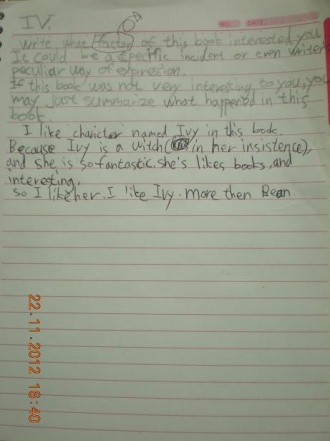 IV.
Write what factor of this book interested you
It could be a specific incident or even writer
peculiar way of expression.
If this book was not very interesting to you, you
may just summarize what happened in this
book.
I like charicter named Ivy in this book.
Because Ivy is a witch( in her insistence),
and she is so fantastic. she's likes books, and
interesting.
so I like her. I like Ivy. more then Bean
22.11.2012 18:40